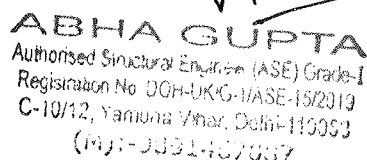 ABHA GUPTA
Authorised Structural Engineer (ASE) Grade-I
Registration No. DOH-UK/G-1/ASE-15/2019
C-10/12, Yamuna Vihar, Delhi-110053